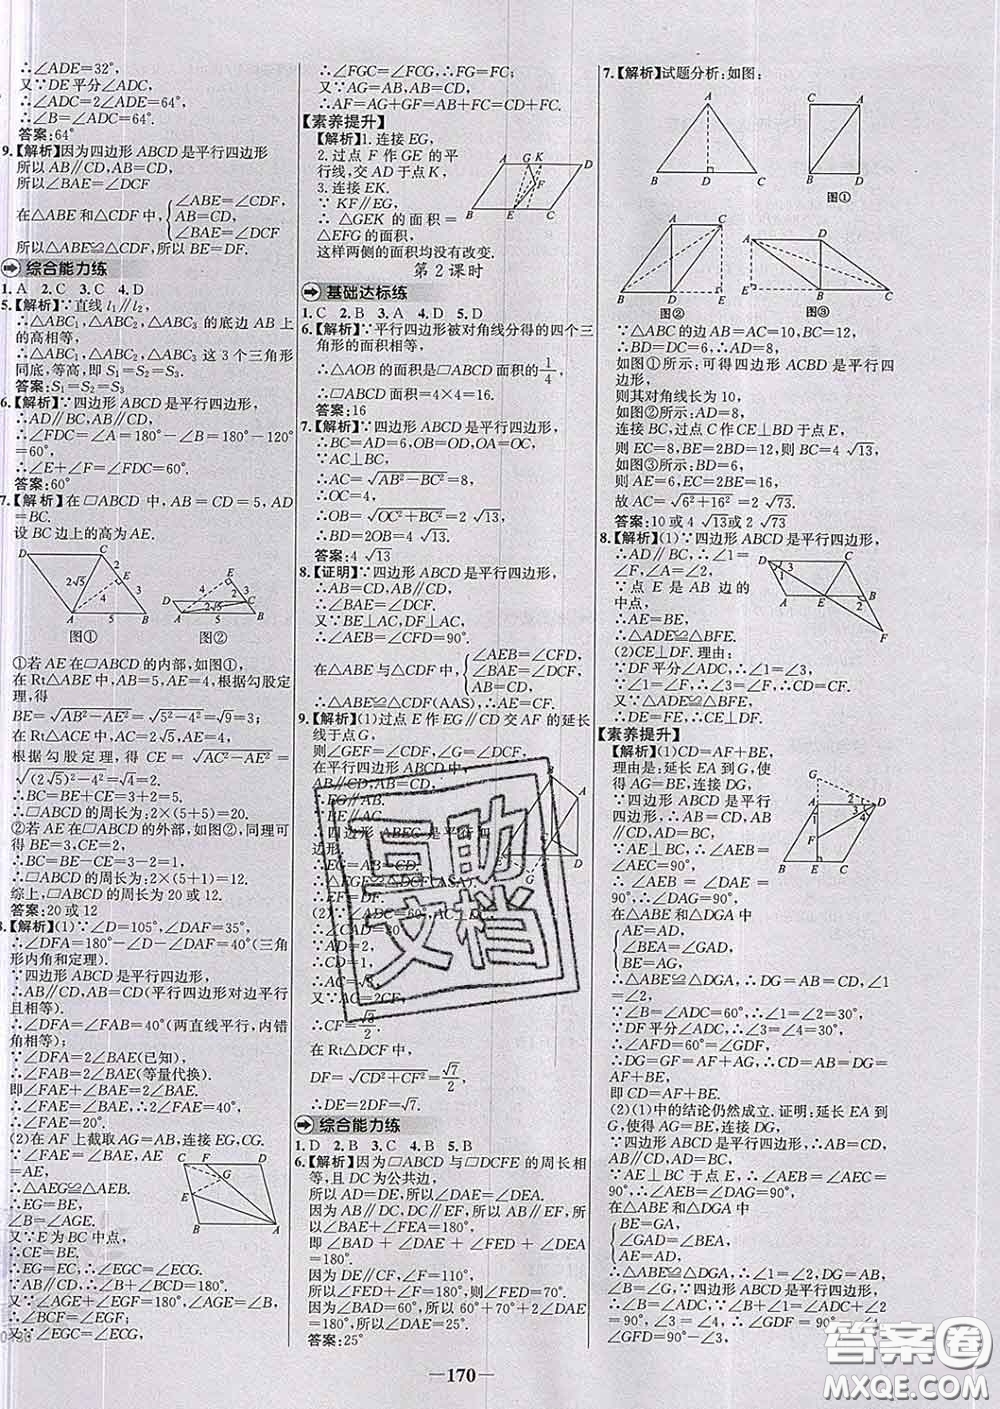 ∴∠ADE=32°,
又∵DE平分∠ADC,
∴∠ADC=2∠ADE=64°.
∴∠B=∠ADC=64°.
答案:64°
9.【解析】因为四边形ABCD是平行四边形
所以AB∥CD,AB=CD,
所以∠BAE=∠DCF
在△ABE和△CDF中,{∠ABE=∠CDF, AB=CD, ∠BAE=∠DCF
所以△ABE≌△CDF,所以BE=DF.
综合能力练
1.A 2.C 3.C 4.D
5.【解析】∵直线l₁∥l₂,
∴△ABC₁,△ABC₂,△ABC₃的底边AB上
的高相等,
∴△ABC₁,△ABC₂,△ABC₃这3个三角形
同底,等高,即S₁=S₂=S₃.
答案:S₁=S₂=S₃
6.【解析】∵四边形ABCD是平行四边形,
∴AD∥BC,AB∥CD,
∴∠FDC=∠A=180°-∠B=180°-120°
=60°,
∴∠E+∠F=∠FDC=60°.
答案:60°
7.【解析】在□ABCD中,AB=CD=5,AD
=BC.
设BC边上的高为AE.
D C E 2√5 4 3 A 5 B
图①
E 4 3 D C 2√5 A B
图②
①若AE在□ABCD的内部,如图①,
在Rt△ABE中,AB=5,AE=4,根据勾股定
理,得
BE=√(AB²-AE²)=√(5²-4²)=√9=3;
在Rt△ACE中,AC=2√5,AE=4,
根据勾股定理,得CE=√(AC²-AE²)=
√((2√5)²-4²)=√4=2.
∴BC=BE+CE=3+2=5.
∴□ABCD的周长为:2×(5+5)=20.
②若AE在□ABCD的外部,如图②,同理可
得BE=3,CE=2,
∴BC=BE-CE=3-2=1.
∴□ABCD的周长为:2×(5+1)=12.
综上,□ABCD的周长为20或12.
答案:20或12
【解析】(1)∵∠D=105°,∠DAF=35°,
∴∠DFA=180°-∠D-∠DAF=40°(三角
形内角和定理).
∵四边形ABCD是平行四边形,
∴AB∥CD,AB=CD(平行四边形对边平行
且相等).
∴∠DFA=∠FAB=40°(两直线平行,内错
角相等);
∵∠DFA=2∠BAE(已知),
∴∠FAB=2∠BAE(等量代换).
即∠FAE+∠BAE=2∠BAE.
∴∠FAE=∠BAE;∴2∠FAE=40°,
∴∠FAE=20°.
(2)在AF上截取AG=AB,连接EG,CG.
∵∠FAE=∠BAE,AE
=AE,
∴△AEG≌△AEB.
∴EG=BE,
∠B=∠AGE.
又∵E为BC中点,
∴CE=BE.
∴EG=EC,∴∠EGC=∠ECG.
∵AB∥CD,∴∠B+∠BCD=180°.
又∵∠AGE+∠EGF=180°,∠AGE=∠B,
∴∠BCF=∠EGF.
又∵∠EGC=∠ECG,
C F D G E B A
∴∠FGC=∠FCG,∴FG=FC;
又∵AG=AB,AB=CD,
∴AF=AG+GF=AB+FC=CD+FC.
【素养提升】
【解析】1.连接EG,
2.过点F作GE的平
行线,交AD于点K,
3.连接EK.
∵KF∥EG,
∴△GEK的面积=
△EFG的面积,
这样两侧的面积均没有改变.
A G K D F B E C
第2课时
基础达标练
1.C 2.B 3.A 4.D 5.D
6.【解析】∵平行四边形被对角线分得的四个三
角形的面积相等,
∴△AOB的面积是□ABCD面积的1/4,
∴□ABCD面积=4×4=16.
答案:16
7.【解析】∵四边形ABCD是平行四边形,
∴BC=AD=6,OB=OD,OA=OC,
∵AC⊥BC,
∴AC=√(AB²-BC²)=8,
∴OC=4,
∴OB=√(OC²+BC²)=2√13,
∴BD=2OB=4√13.
答案:4√13
8.【证明】∵四边形ABCD是平行四边形,
∴AB=CD,AB∥CD,
∴∠BAE=∠DCF.
又∵BE⊥AC,DF⊥AC,
∴∠AEB=∠CFD=90°.
在△ABE与△CDF中,{∠AEB=∠CFD, ∠BAE=∠DCF, AB=CD,
∴△ABE≌△CDF(AAS),∴AE=CF.
9.【解析】(1)过点E作EG∥CD交AF的延长
线于点G,
则∠GEF=∠CDF,∠G=∠DCF,
在平行四边形ABCD中,
AB∥CD,AB=CD,
∵EG∥CD,
∴EG∥AB.
∵BE∥AG,
∴四边形ABEG是平行四
边形,
∴EG=AB=CD.
∴△EGF≌△DCF(ASA).
∴EF=DF.
(2)∵∠ADC=60°,AC⊥DC,
∴∠CAD=30°
∴AD=2,
∴CD=1,
∴AC=√3.
又∵AC=2CF,
∴CF=√3/2.
在Rt△DCF中,
DF=√(CD²+CF²)=√7/2,
∴DE=2DF=√7.
综合能力练
1.D 2.B 3.C 4.B 5.B
6.【解析】因为□ABCD与□DCFE的周长相
等,且DC为公共边,
所以AD=DE,所以∠DAE=∠DEA.
因为AB∥DC,DC∥EF,所以AB∥EF,
所以∠BAE+∠FEA=180°,
即∠BAD+∠DAE+∠FED+∠DEA
=180°.
因为DE∥CF,∠F=110°,
所以∠FED+∠F=180°,则∠FED=70°.
因为∠BAD=60°,所以60°+70°+2∠DAE
=180°,所以∠DAE=25°.
答案:25°
7.【解析】试题分析:如图:
A B D C
C A B D
图①
A C B D E
图②
A D E B C
图③
∵△ABC的边AB=AC=10,BC=12,
∴BD=DC=6,∴AD=8,
如图①所示:可得四边形ACBD是平行四
边形,
则其对角线长为10
如图②所示:AD=8,
连接BC,过点C作CE⊥BD于点E,
则EC=8,BE=2BD=12,则BC=4√13,
如图③所示:BD=6,
由题意可得:AE=6,EC=2BE=16,
故AC=√(6²+16²)=2√73.
答案:10或4√13或2√73
8.【解析】(1)∵四边形ABCD是平行四边形,
∴AD∥BC,∴∠1=
∠F,∠A=∠2.
∵点E是AB边的
中点,
∴AE=BE,
∴△ADE≌△BFE.
(2)CE⊥DF.理由:
∵DF平分∠ADC,∴∠1=∠3.
∵∠1=∠F,∴∠3=∠F,∴CD=CF.
∵△ADE≌△BFE,
∴DE=FE,∴CE⊥DF.
D C 3 1 A E 2 B F
【素养提升】
【解析】(1)CD=AF+BE,
理由是:延长EA到G,使
得AG=BE,连接DG,
∵四边形ABCD是平行四
边形,
∴AB=CD,AB∥CD,
AD=BC,
∵AE⊥BC于点E,
∴∠AEB=
∠AEC=90°,
∴∠AEB=∠DAE=
∠DAG=90°,
G A D 2 3 4 F 1 B E C
在△ABE和△DGA中
{AE=AD, ∠BEA=∠GAD, BE=AG,
∴△ABE≌△DGA,∴DG=AB=CD,∠1
=∠2,∵∠1=30°,∴∠1=∠2=30°,
∵DF平分∠ADC,∴∠3=∠4=30°,
∴∠AFD=60°=∠GDF,
∴DG=GF=AF+AG,∴CD=AB=DG=
AF+BE,即CD=AF+BE.
(2)(1)中的结论仍然成立.证明:延长EA到
G,使得AG=BE,连接DG,
∵四边形ABCD是平行四边形,∴AB=CD,
AB∥CD,AD=BC,
∵AE⊥BC于点E,∴∠AEB=∠AEC=90°,
∴∠AEB=∠DAG=90°,
在△ABE和△DGA中
{BE=GA, ∠GAD=∠BEA, AE=AD,
∴△ABE≌△DGA,∴∠1=∠2,DG=AB,
∠B=∠G,∵四边形ABCD是平行四边形,
∴∠B=∠ADC
互助
文档
答案圈
MXQE.COM
— 170 —